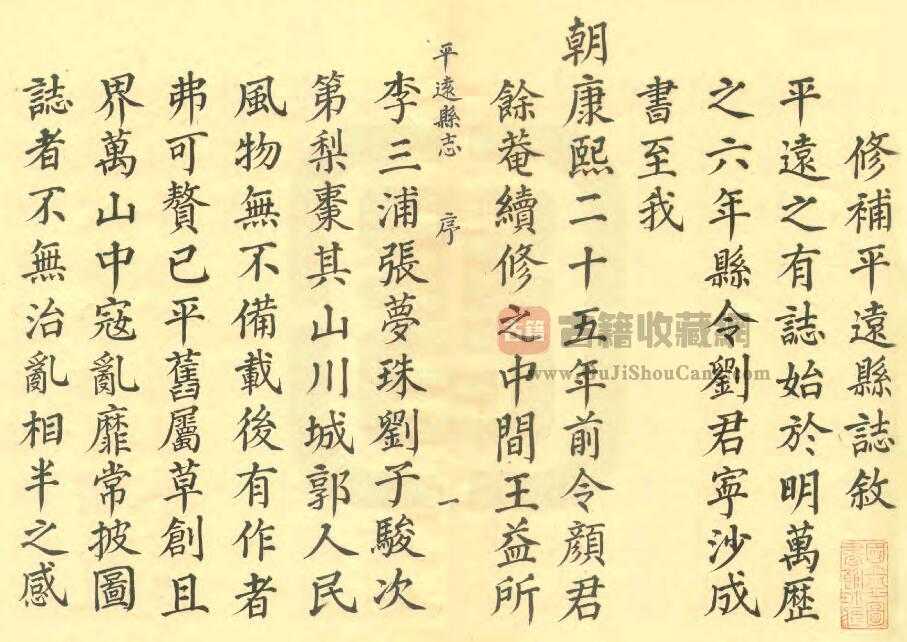 修補平遠縣誌敘
平遠之有誌始於明萬歷
之六年縣令劉君寕沙成
書至我
朝康熙二十五年前令顏君
餘菴續修之中間王益所
平遠縣志 序 一
李三浦張夢珠劉子駿次
第梨棗其山川城郭人民
風物無不備載後有作者
弗可贅已平舊屬草創且
界萬山中寇亂靡常披圖
誌者不無治亂相半之感
古籍
古籍收藏網
www.GuJiShouCang.com